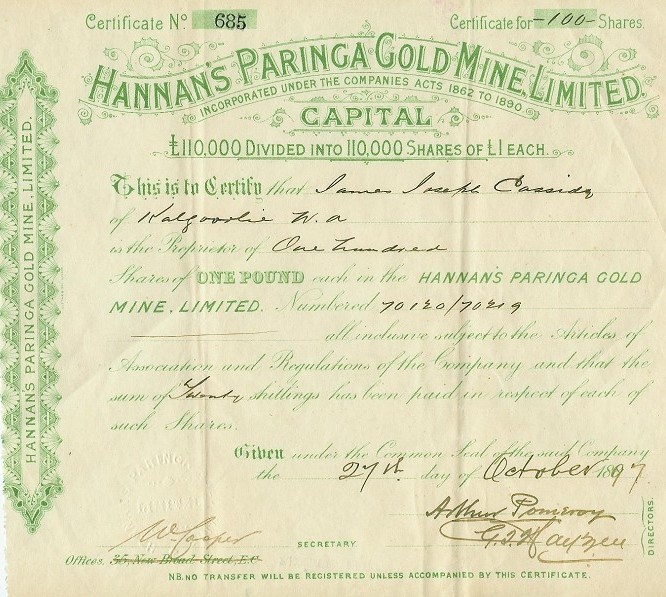 Certificate No. 685
Certificate for -100- Shares.
HANNAN'S PARINGA GOLD MINE, LIMITED.
INCORPORATED UNDER THE COMPANIES ACTS 1862 TO 1890.
CAPITAL
£110,000 DIVIDED INTO 110,000 SHARES OF £1 EACH.
This is to Certify that James Joseph Cassidy
of Kalgoorlie W.A
is the Proprietor of One hundred
Shares of ONE POUND each in the HANNAN'S PARINGA GOLD
MINE, LIMITED. Numbered 70120/70219
all inclusive subject to the Articles of
Association and Regulations of the Company and that the
sum of Twenty shillings has been paid in respect of each of
such Shares.
Given under the Common Seal of the said Company
the 27th day of October 1897
Arthur Pomeroy
DIRECTORS.
W. Cooper
SECRETARY.
Offices. 35, New Broad Street, E.C.
N.B. NO TRANSFER WILL BE REGISTERED UNLESS ACCOMPANIED BY THIS CERTIFICATE.
HANNAN'S PARINGA GOLD MINE, LIMITED.